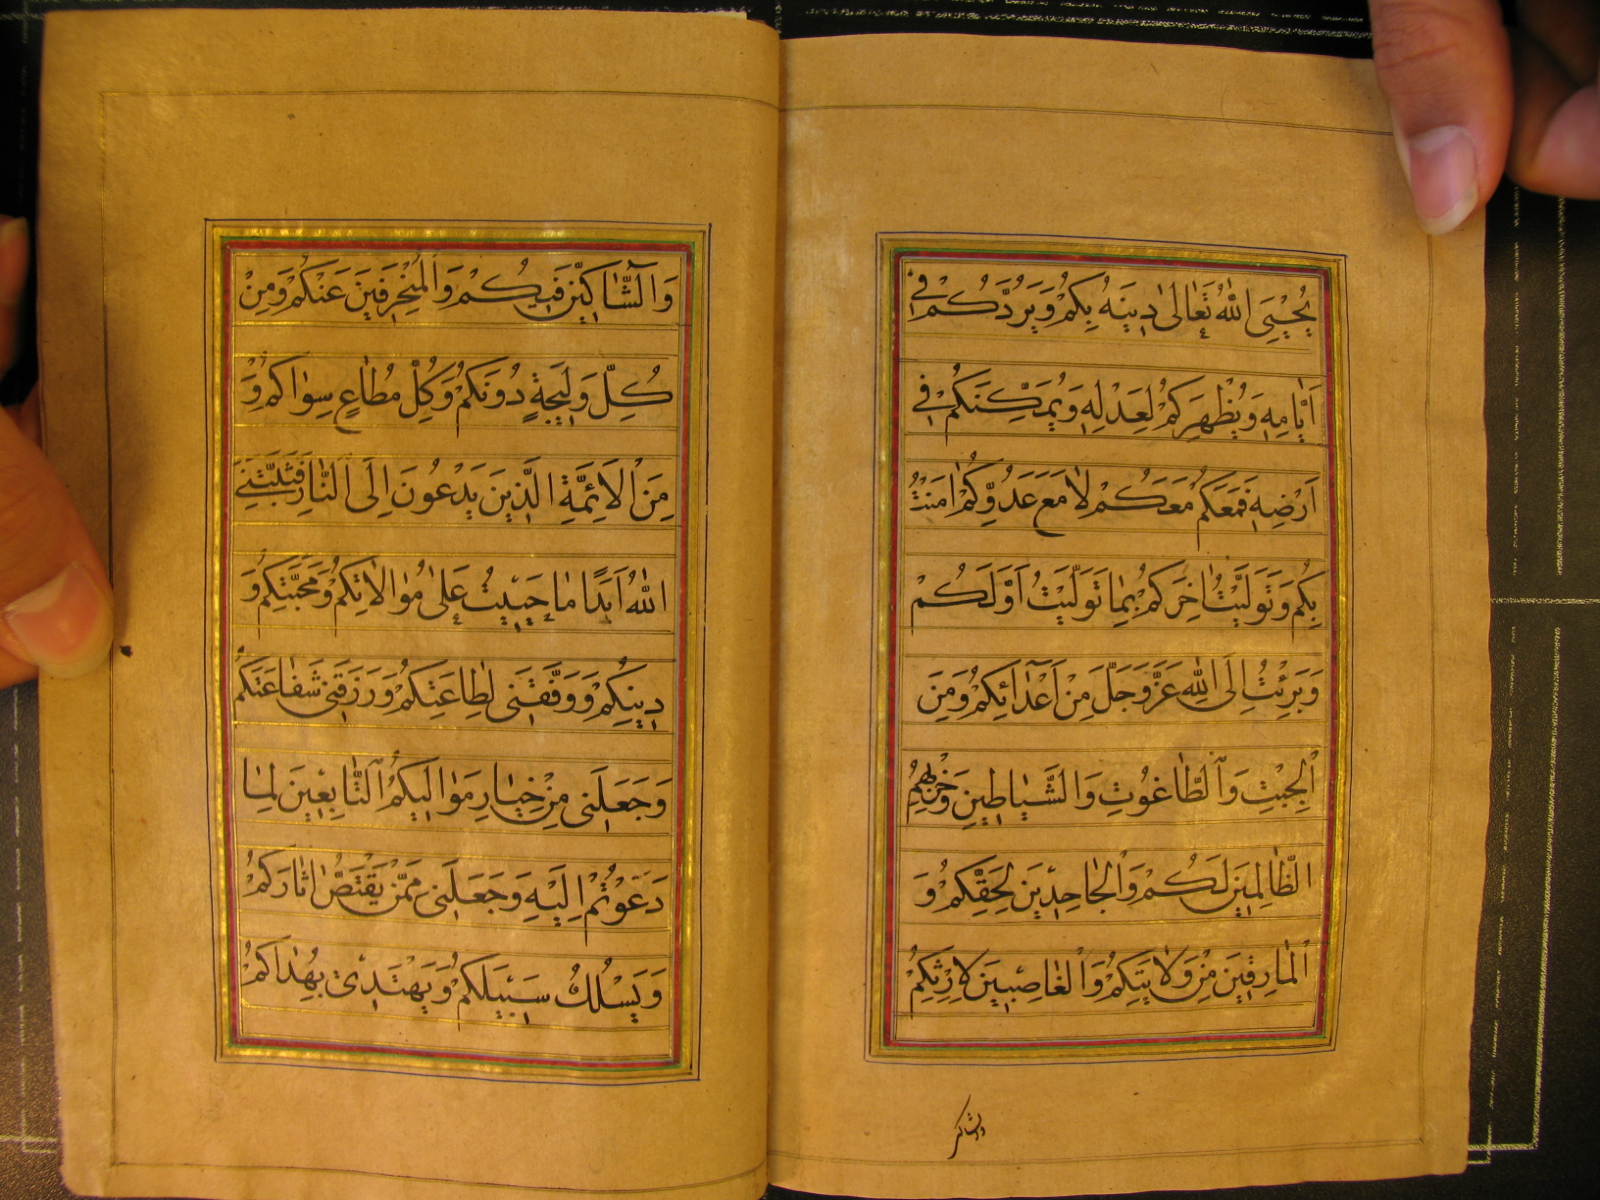 يُحْيِيَ اللّٰهُ تَعٰالىٰ دٖينَهُ بِكُمْ وَيَرُدَّكُمْ فٖي
اَيّٰامِهٖ وَيُظْهِرَكُمْ لِعَدْلِهٖ وَيُمَكِّنَكُمْ فٖي
اَرْضِهٖ فَمَعَكُمْ مَعَكُمْ لاٰ مَعَ عَدُوِّكُمْ اٰمَنْتُ
بِكُمْ وَتَوَلَّيْتُ اٰخِرَكُمْ بِمٰا تَوَلَّيْتُ اَوَّلَكُمْ
وَبَرِئْتُ اِلَى اللّٰهِ عَزَّ وَجَلَّ مِنْ اَعْدٰٓائِكُمْ وَمِنَ
الْجِبْتِ وَالطّٰاغُوتِ وَالشَّيٰاطٖينِ وَحِزْبِهِمُ
الظّٰالِمٖينَ لَكُمْ وَالْجٰاحِدٖينَ لِحَقِّكُمْ وَ
الْمٰارِقٖينَ مِنْ وَلاٰيَتِكُمْ وَالْغٰاصِبٖينَ لِاِرْثِكُمْ
والشاكين
وَالشّٰٓاكّٖينَ فٖيكُمْ وَالْمُنْحَرِفٖينَ عَنْكُمْ وَمِنْ
كُلِّ وَلٖيجَةٍ دُونَكُمْ وَكُلِّ مُطٰاعٍ سِوٰاكُمْ وَ
مِنَ الْاَئِمَّةِ الَّذٖينَ يَدْعُونَ اِلَى النّٰارِ فَثَبَّتَنِيَ
اللّٰهُ اَبَدًا مٰا حَيٖيتُ عَلىٰ مُوٰالاٰتِكُمْ وَمَحَبَّتِكُمْ وَ
دٖينِكُمْ وَوَفَّقَنٖي لِطٰاعَتِكُمْ وَرَزَقَنٖي شَفٰاعَتَكُمْ
وَجَعَلَنٖي مِنْ خِيٰارِ مَوٰالٖيكُمُ التّٰابِعٖينَ لِمٰا
دَعَوْتُمْ اِلَيْهِ وَجَعَلَنٖي مِمَّنْ يَقْتَصُّ اٰثٰارَكُمْ
وَيَسْلُكُ سَبٖيلَكُمْ وَيَهْتَدٖي بِهُدٰاكُمْ